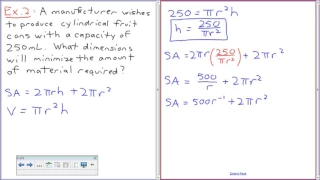 Ex.2: A manufacturer wishes
to produce cylindrical fruit
cans with a capacity of
250mL. What dimensions
will minimize the amount
of material required?
SA = 2πrh + 2πr²
V = πr²h
250 = πr²h
h = 250/πr²
SA = 2πr(250/πr²) + 2πr²
SA = 500/r + 2πr²
SA = 500r⁻¹ + 2πr²